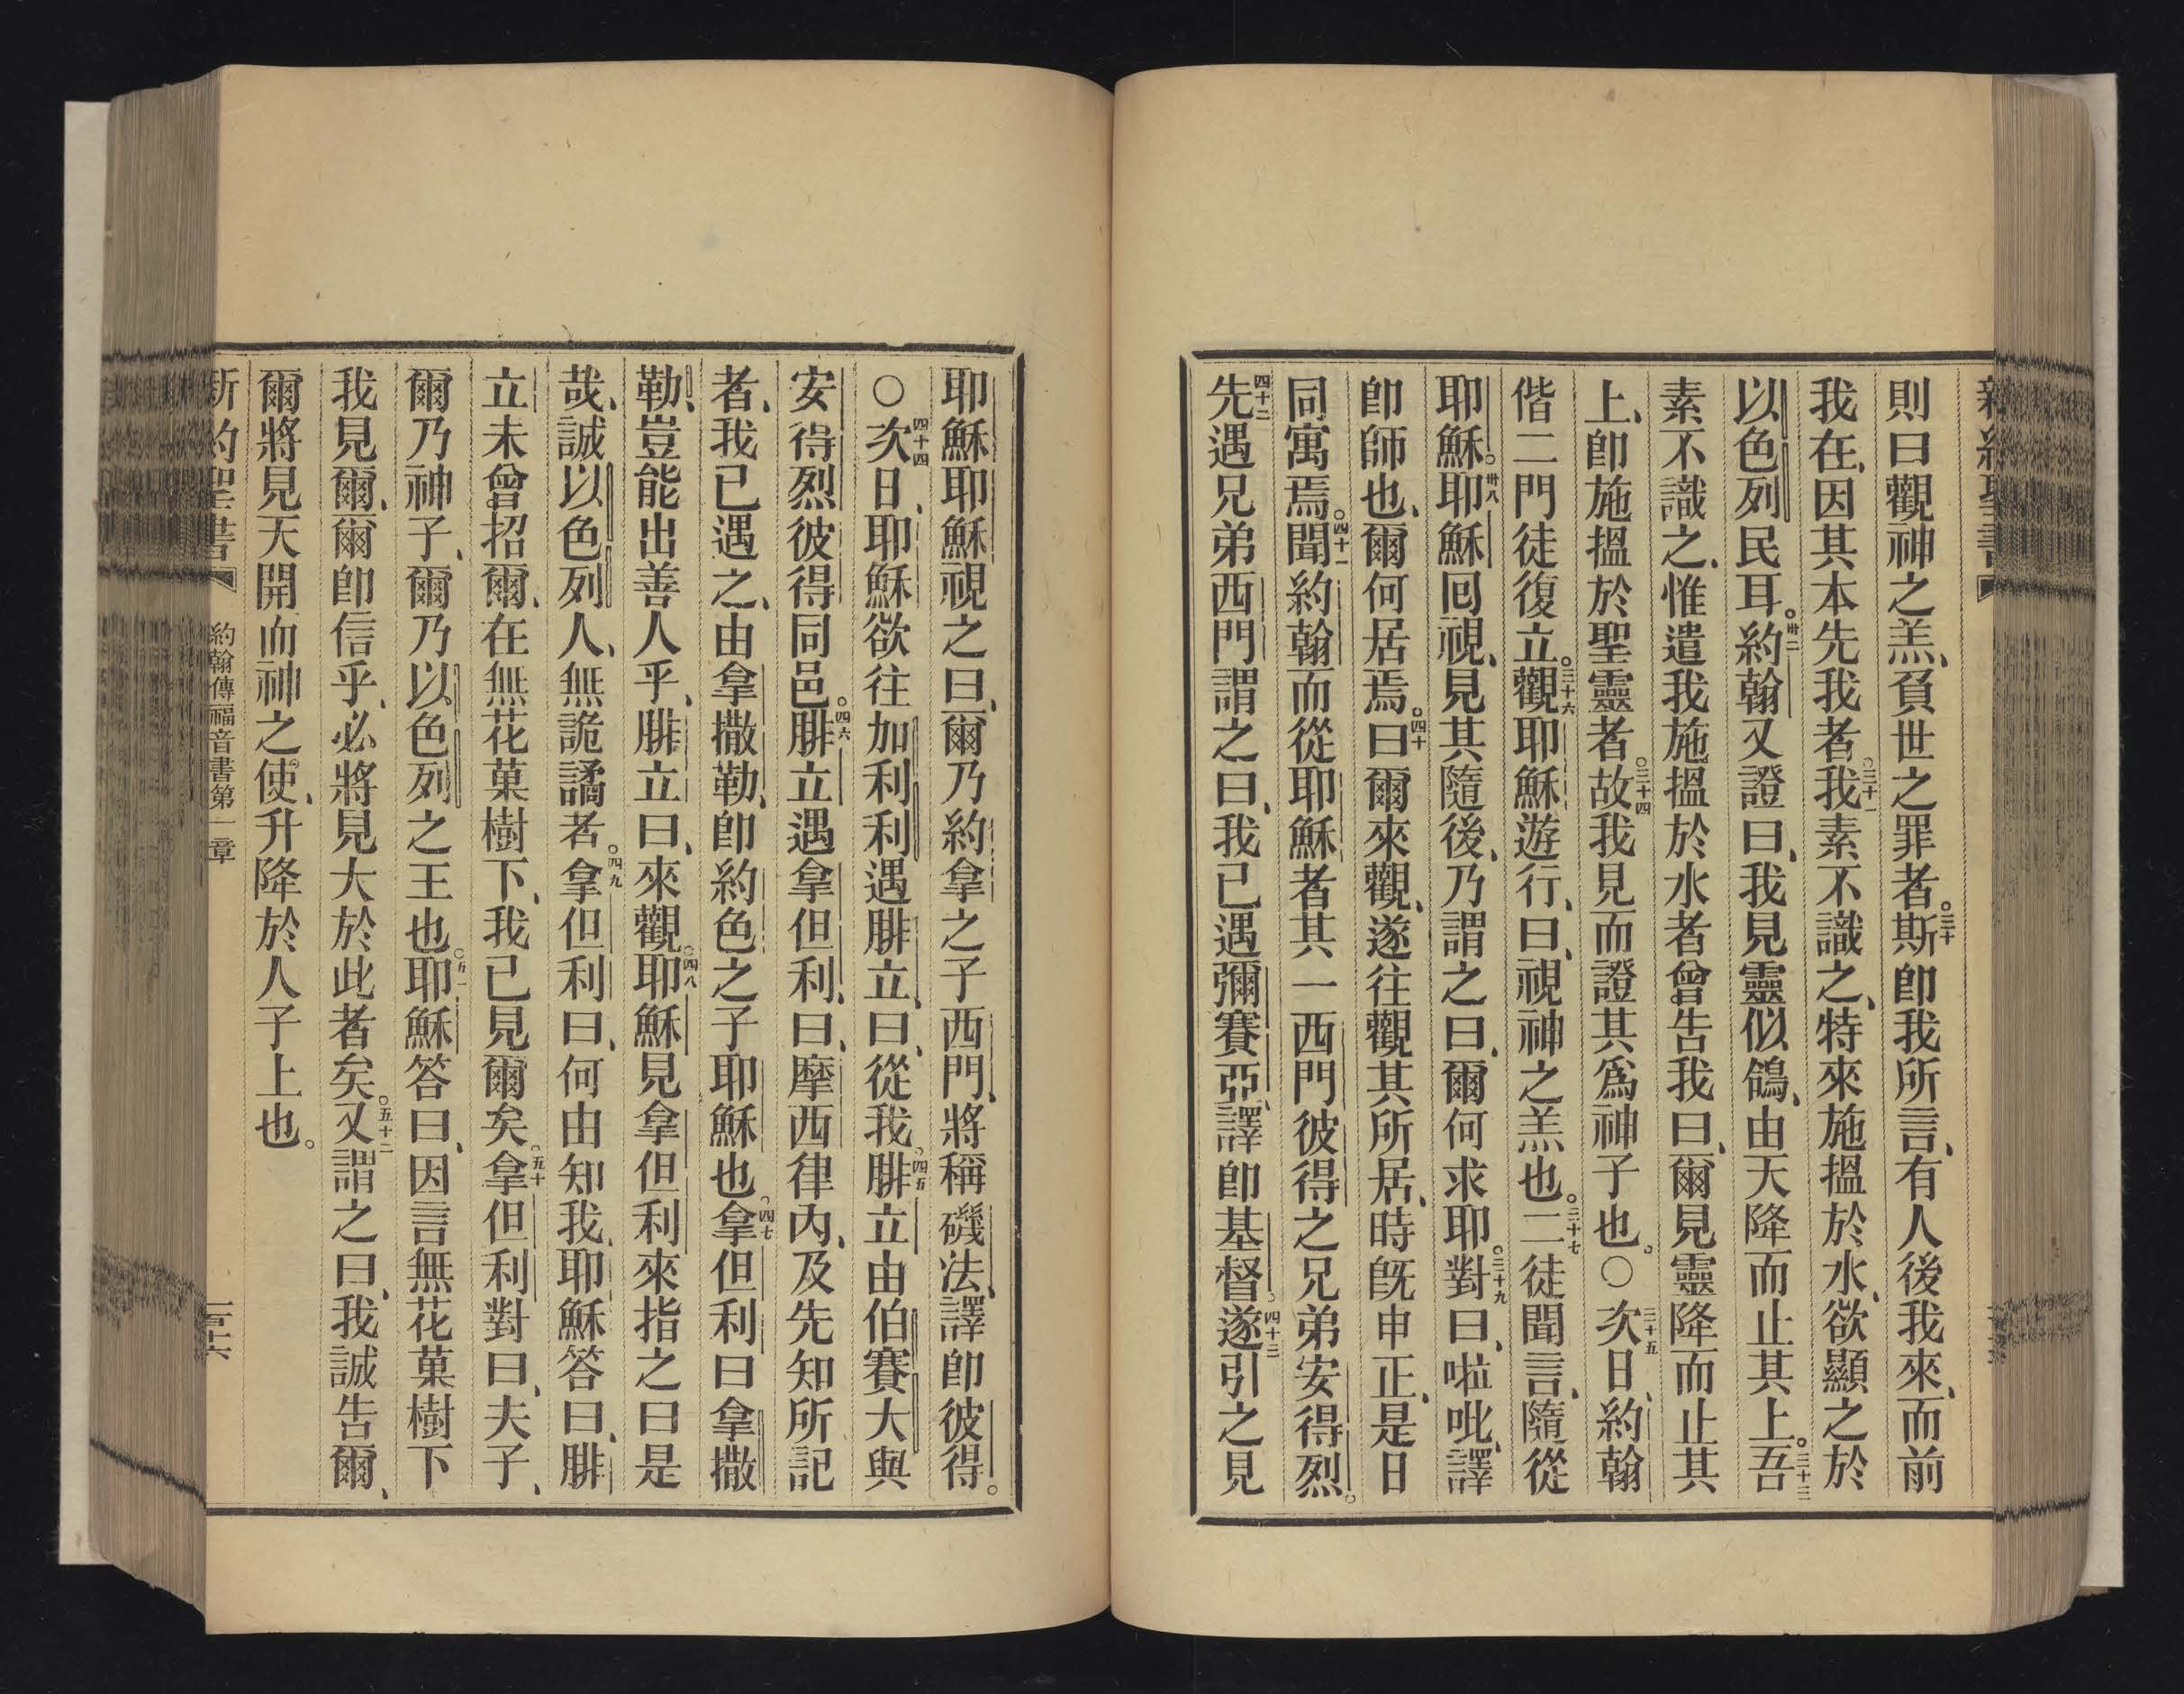 新約聖書
則曰觀神之羔、負世之罪者。三十斯卽我所言、有人後我來、而前
我在、因其本先我者。三十一我素不識之、特來施搵於水、欲顯之於
以色列民耳。卅二約翰又證曰、我見靈似鴿、由天降而止其上。三十三吾
素不識之、惟遣我施搵於水者曾告我曰、爾見靈降而止其
上、卽施搵於聖靈者。三十四故我見而證其爲神子也。○三十五次日、約翰
偕二門徒復立。三十六觀耶穌遊行、曰、視神之羔也。三十七二徒聞言、隨從
耶穌。卅八耶穌回視、見其隨後、乃謂之曰、爾何求耶。三十九對曰、啦吡、譯
卽師也、爾何居焉。四十曰爾來觀、遂往觀其所居、時旣申正、是日
同寓焉。四十一聞約翰而從耶穌者其一西門彼得之兄弟安得烈。
四十二先遇兄弟西門謂之曰、我已遇彌賽亞、譯卽基督。四十三遂引之見
耶穌耶穌視之曰、爾乃約拿之子西門、將稱磯法、譯卽彼得。
○四十四次日、耶穌欲往加利利遇腓立、曰、從我。四五腓立由伯賽大與
安得烈彼得同邑。四六腓立遇拿但利、曰、摩西律內、及先知所記
者、我已遇之、由拿撒勒、卽約色之子耶穌也。四七拿但利曰拿撒
勒、豈能出善人乎、腓立曰、來觀。四八耶穌見拿但利來指之曰是
哉、誠以色列人、無詭譎者。四九拿但利曰、何由知我、耶穌答曰、腓
立未曾招爾、在無花菓樹下、我已見爾矣。五十拿但利對曰、夫子、
爾乃神子、爾乃以色列之王也。五一耶穌答曰、因言無花菓樹下
我見爾、爾卽信乎、必將見大於此者矣。五十二又謂之曰、我誠告爾、
爾將見天開而神之使、升降於人子上也。
新約聖書 約翰傳福音書第一章 一百十六